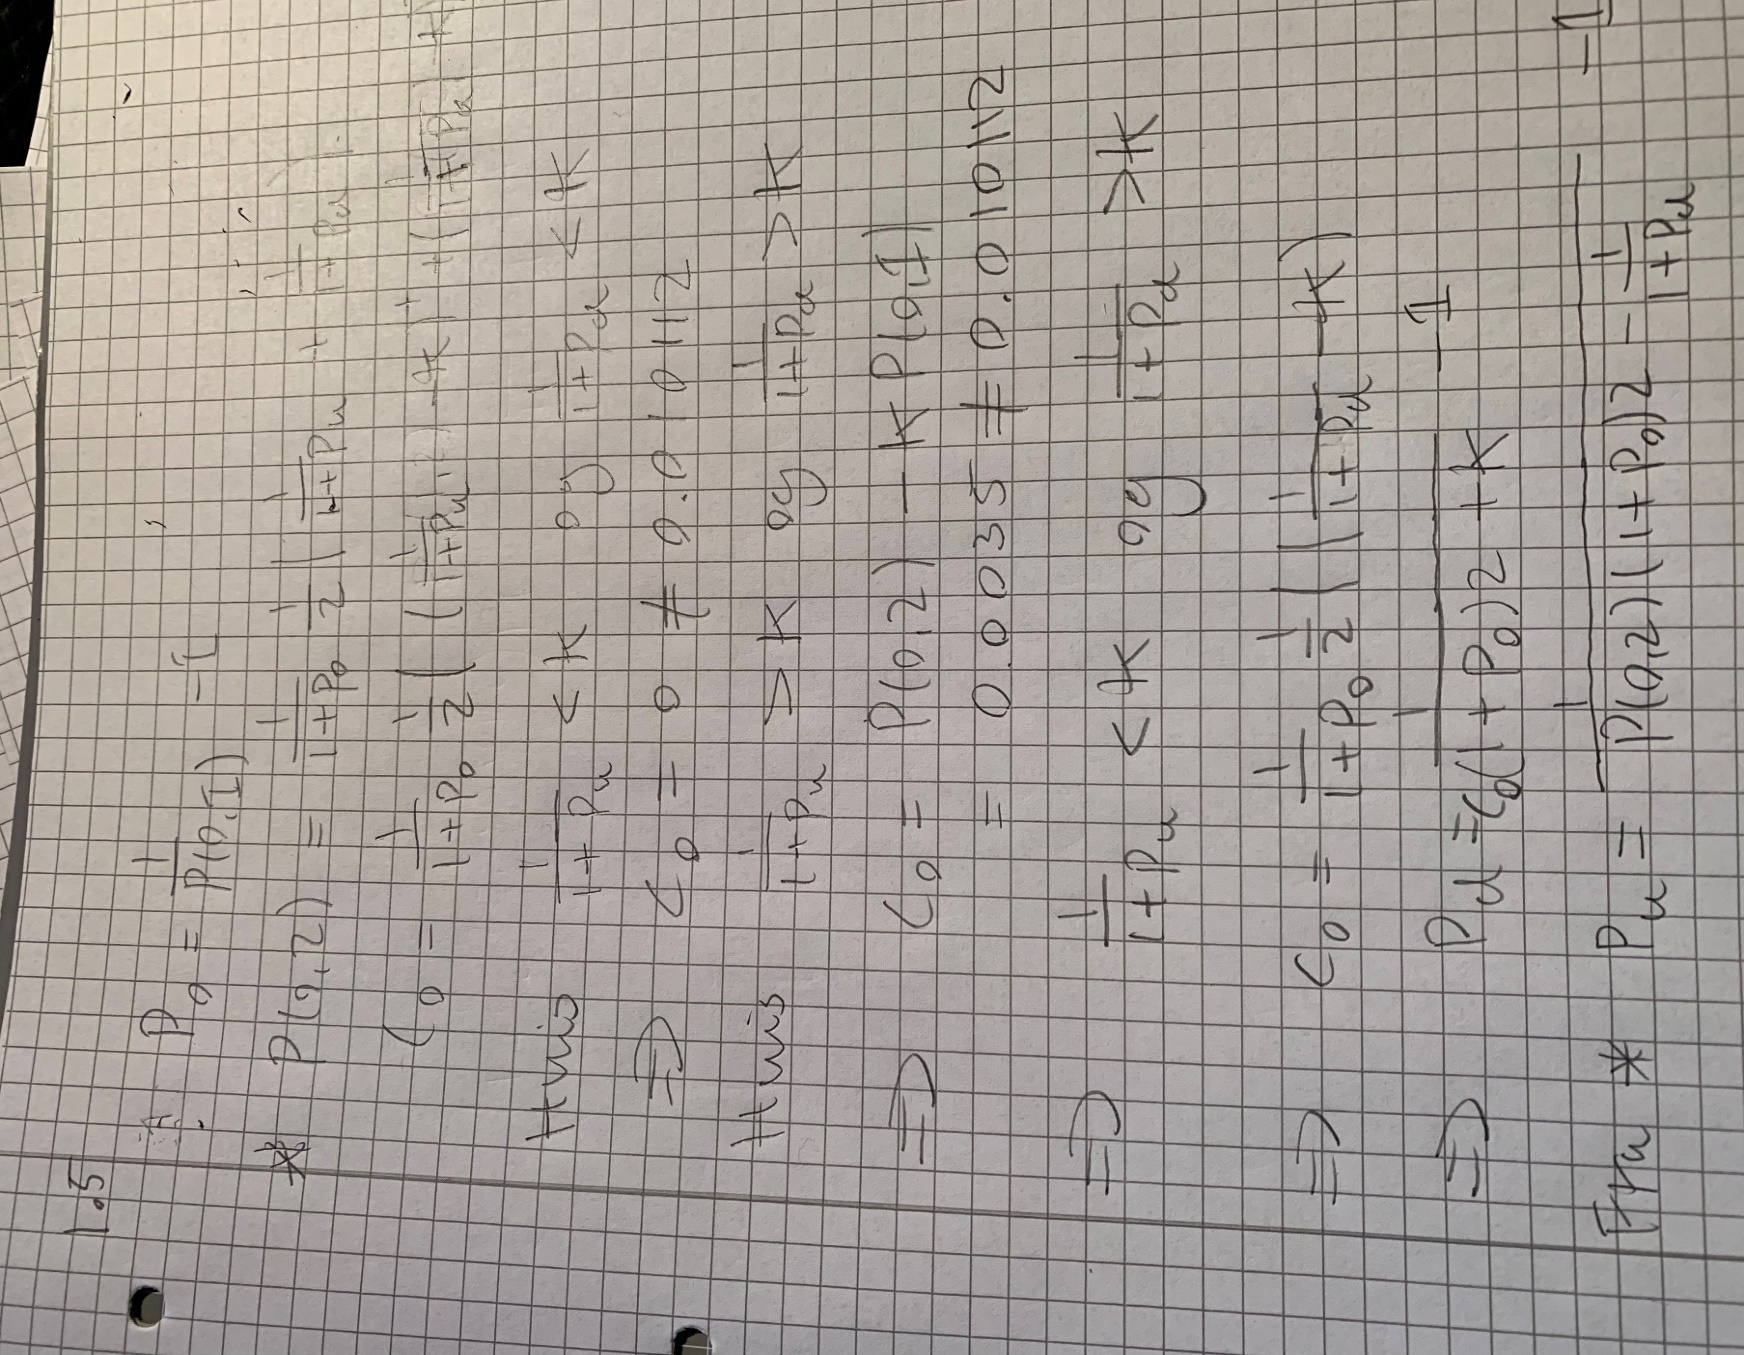 1.5
ρ₀ = 1/P(0,1) -1
* P(0,2) = 1/(1+ρ₀) 1/2 ( 1/(1+ρu) + 1/(1+ρd) )
C₀ = 1/(1+ρ₀) 1/2 ( (1/(1+ρu) -K)⁺ + (1/(1+ρd) -K
Hvis 1/(1+ρu) < K og 1/(1+ρd) < K
⇒ C₀ = 0 ≠ 0.010112
Hvis 1/(1+ρu) > K og 1/(1+ρd) > K
⇒ C₀ = P(0,2) - K P(0,1)
= 0.0035 ≠ 0.010112
⇒ 1/(1+ρu) < K og 1/(1+ρd) > K
⇒ C₀ = 1/(1+ρ₀) 1/2 ( 1/(1+ρd) - K)
⇒ ρd = 1/(C₀(1+ρ₀)2 + K) -1
Fra * ρu = 1/(P(0,2)(1+ρ₀)2 - 1/(1+ρd)) -1